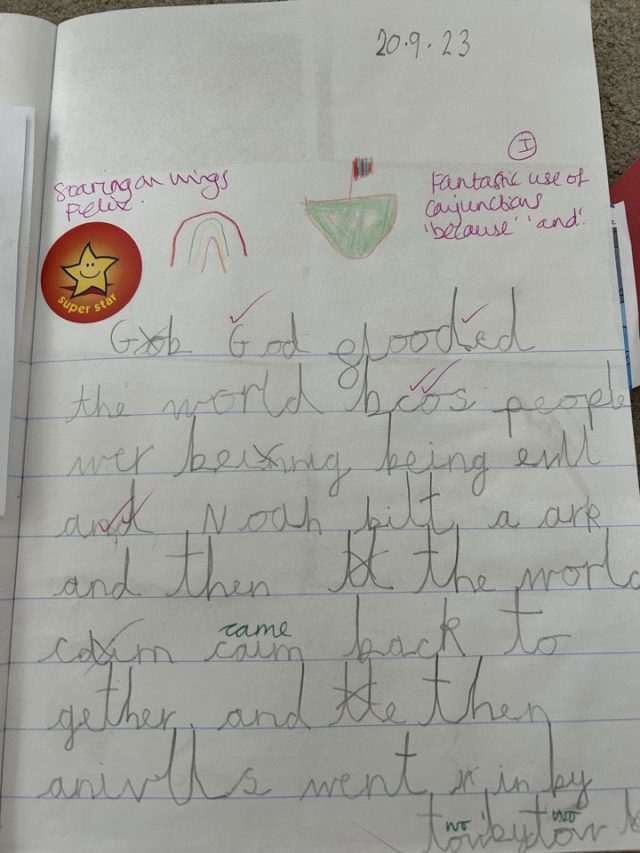 20.9.23
I
Soaring on wings
Felix.
Fantastic use of
conjunctions
'because' 'and'.
super star
Gob God flooded
the world bcos people
wer being being evill
and Noah bilt a ark
and then the world
came
caim caim back to
gether. and then
anivlls went in by
wo wo
tow by tow